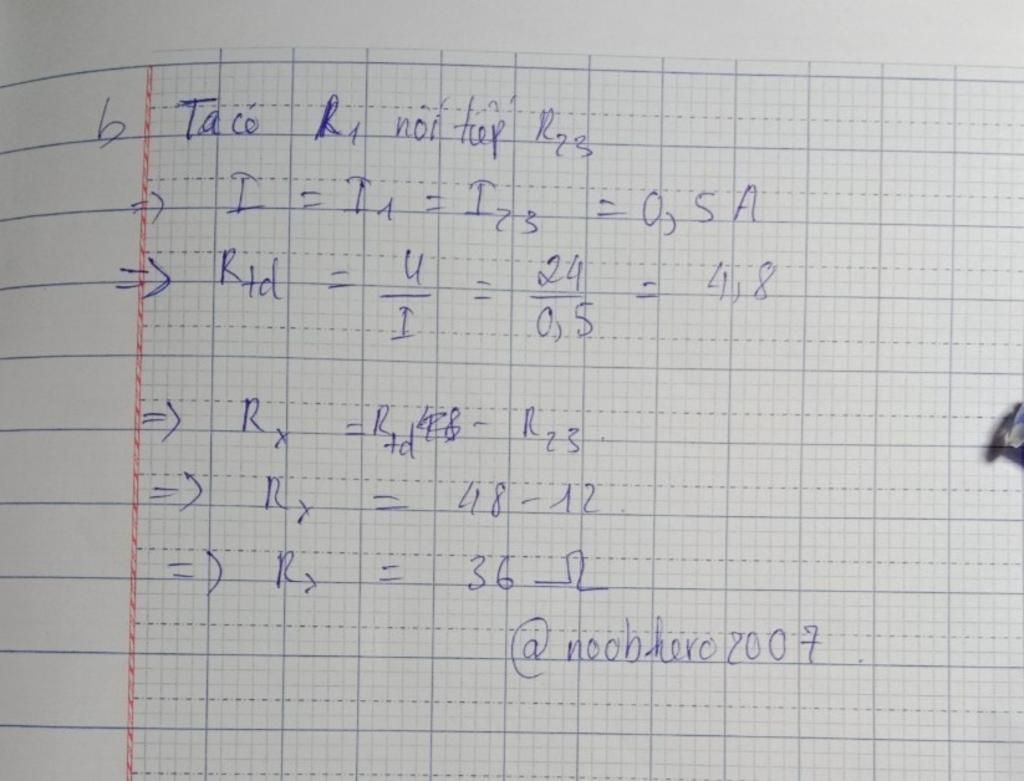 b Ta có R1 nối tiếp R23
=> I = I1 = I23 = 0,5A
=> Rtd = U/I = 24/0,5 = 4,8
=> Rx = Rtd - R23.
=> Rx = 48 - 12.
=> Rx = 36 Ω
@noobhero2007.